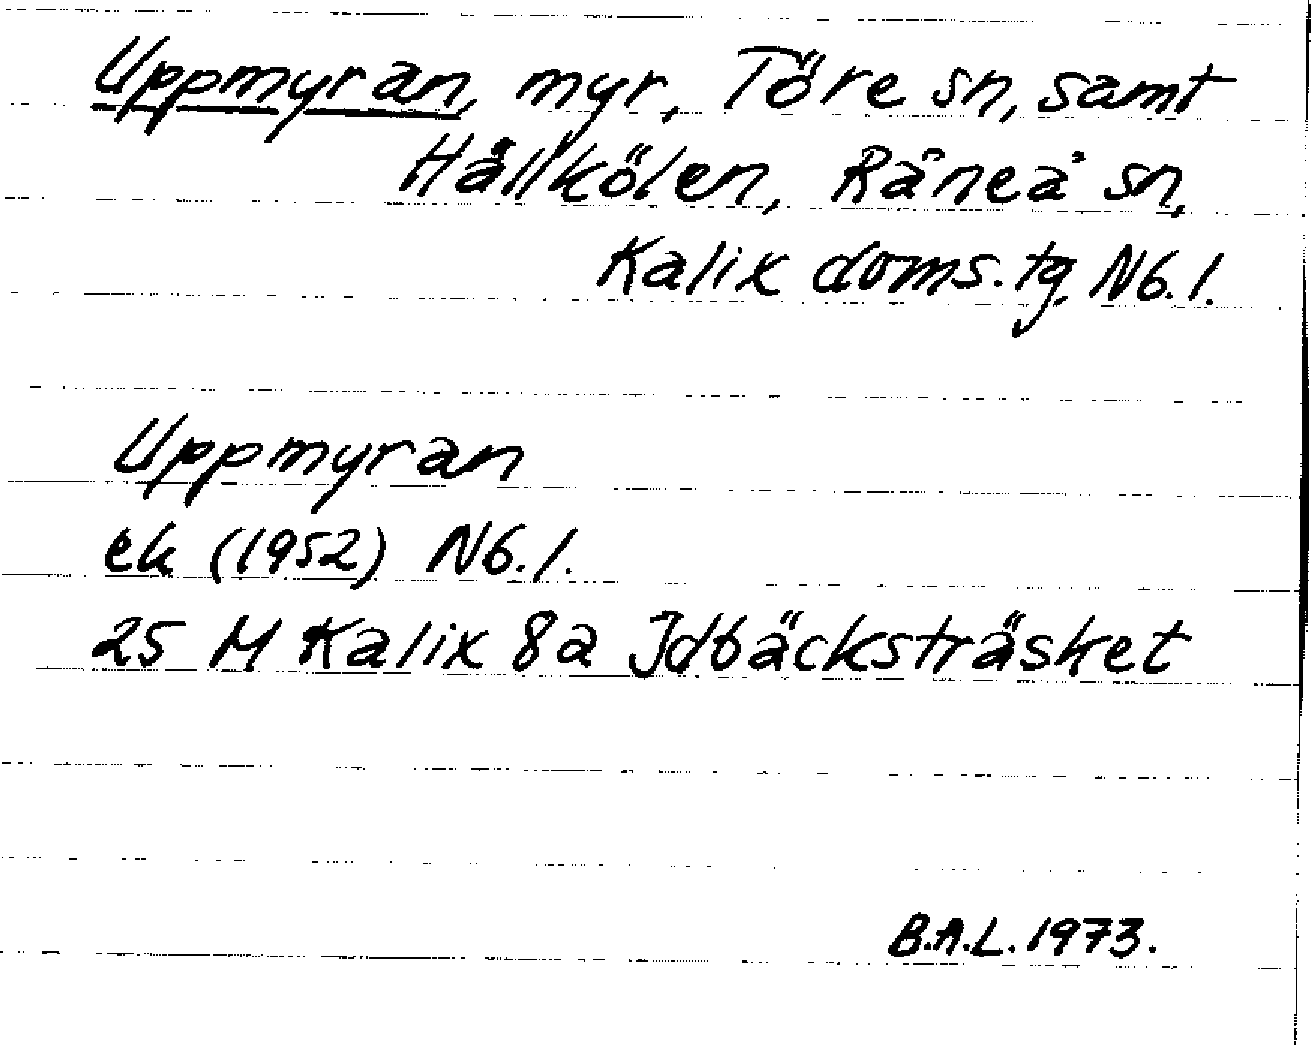 Uppmyran, myr, Töre sn, samt
Hållkölen, Råneå sn,
Kalix doms.tg. Nb.l.
Uppmyran
ek (1952) Nb.l.
25 M Kalix 8a Idbäcksträsket
B.A.L. 1973.